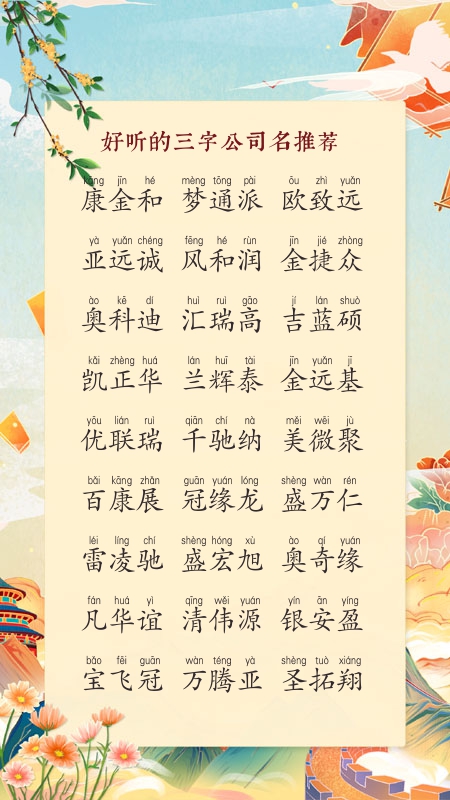 好听的三字公司名推荐
kāng jīn hé mèng tōng pài ōu zhì yuǎn
康金和 梦通派 欧致远
yà yuǎn chéng fēng hé rùn jīn jié zhòng
亚远诚 风和润 金捷众
ào kē dí huì ruì gāo jí lán shuò
奥科迪 汇瑞高 吉蓝硕
kǎi zhèng huá lán huī tài jīn yuǎn jī
凯正华 兰辉泰 金远基
yōu lián ruì qiān chí nà měi wēi jù
优联瑞 千驰纳 美微聚
bǎi kāng zhǎn guān yuán lóng shèng wàn rén
百康展 冠缘龙 盛万仁
léi líng chí shèng hóng xù ào qí yuán
雷凌驰 盛宏旭 奥奇缘
fán huá yì qīng wěi yuán yín ān yíng
凡华谊 清伟源 银安盈
bǎo fēi guān wàn téng yà shèng tuò xiáng
宝飞冠 万腾亚 圣拓翔